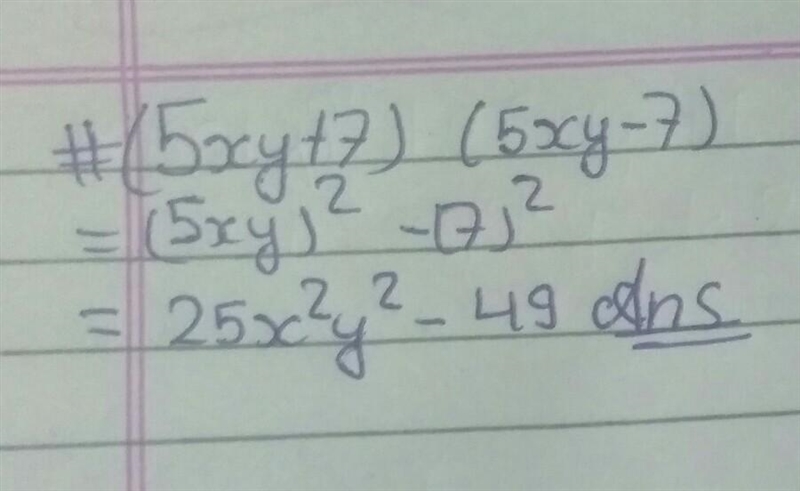 #(5xy+7) (5xy-7)
= (5xy)² -(7)²
= 25x²y² - 49 Ans